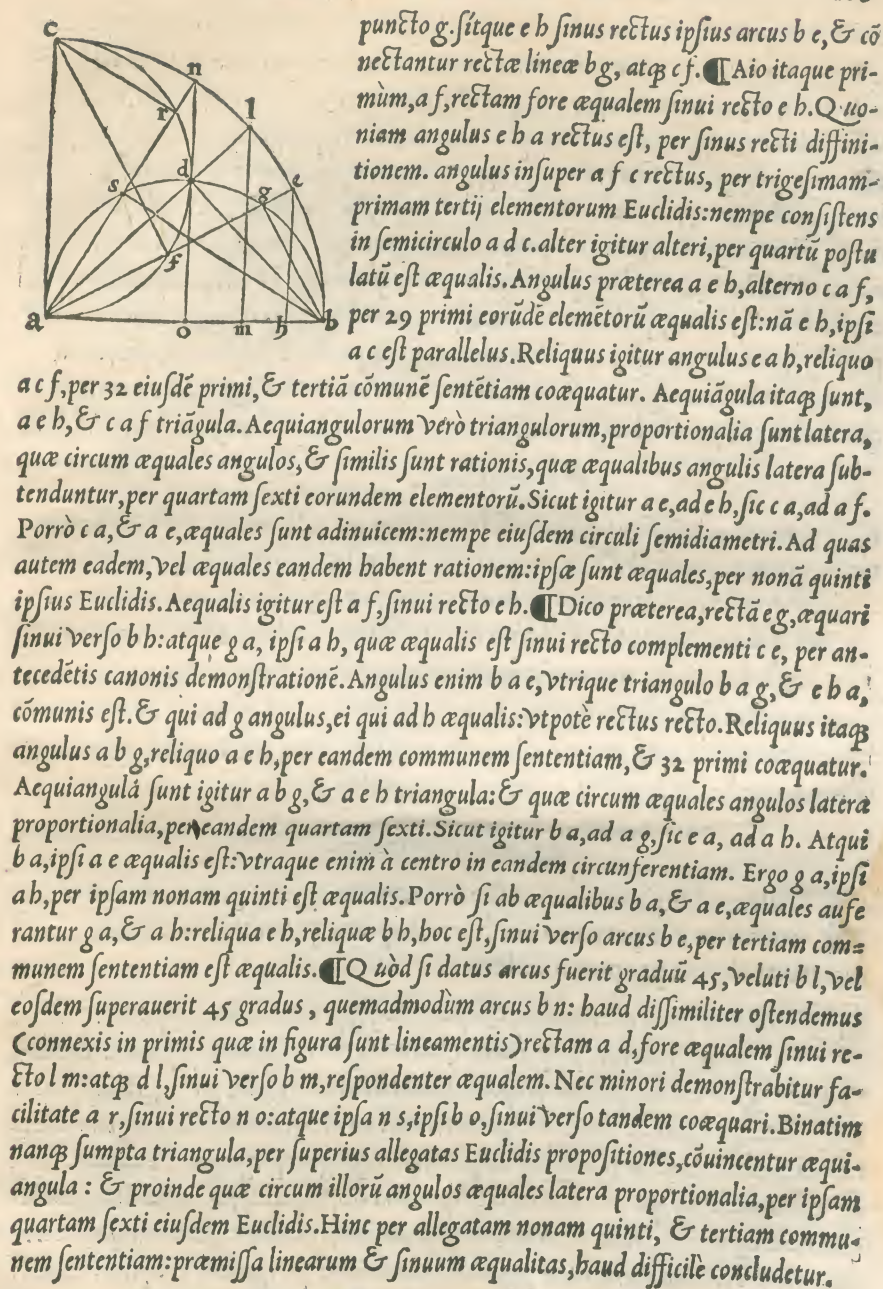 c
n
l
r
d
s
g
e
f
a
o
m
h
b
puncto g. sitque e h sinus rectus ipsius arcus b e, & cõ
nectantur rectæ lineæ b g, atq; c f. ¶ Aio itaque pri-
mùm, a f, rectam fore æqualem sinui recto e h. Quo-
niam angulus e h a rectus est, per sinus recti diffini-
tionem. angulus insuper a f c rectus, per trigesimam-
primam tertij elementorum Euclidis: nempe consistens
in semicirculo a d c. alter igitur alteri, per quartũ postu
latũ est æqualis. Angulus præterea a e h, alterno c a f,
per 29 primi eorũdẽ elemẽtorũ æqualis est: nã e h, ipsi
a c est parallelus. Reliquus igitur angulus e a h, reliquo
a c f, per 32 eiusdẽ primi, & tertiã cõmunẽ sentẽtiam coæquatur. Aequiãgula itaq; sunt,
a e h, & c a f triãgula. Aequiangulorum verò triangulorum, proportionalia sunt latera,
quæ circum æquales angulos, & similis sunt rationis, quæ æqualibus angulis latera sub-
tenduntur, per quartam sexti eorundem elementorũ. Sicut igitur a e, ad e h, sic c a, ad a f.
Porrò c a, & a e, æquales sunt adinuicem: nempe eiusdem circuli semidiametri. Ad quas
autem eadem, vel æquales eandem habent rationem: ipsæ sunt æquales, per nonã quinti
ipsius Euclidis. Aequalis igitur est a f, sinui recto e h. ¶ Dico præterea, rectã e g, æquari
sinui verso b h: atque g a, ipsi a h, quæ æqualis est sinui recto complementi c e, per an-
tecedẽtis canonis demonstrationẽ. Angulus enim b a e, vtrique triangulo b a g, & e h a,
cõmunis est. & qui ad g angulus, ei qui ad h æqualis: vtpotè rectus recto. Reliquus itaq;
angulus a b g, reliquo a e h, per eandem communem sententiam, & 32 primi coæquatur.
Aequiangula sunt igitur a b g, & a e h triangula: & quæ circum æquales angulos latera
proportionalia, per eandem quartam sexti. Sicut igitur b a, ad a g, sic e a, ad a h. Atqui
b a, ipsi a e æqualis est: vtraque enim à centro in eandem circunferentiam. Ergo g a, ipsi
a h, per ipsam nonam quinti est æqualis. Porrò si ab æqualibus b a, & a e, æquales aufe
rantur g a, & a h: reliqua e h, reliquæ b h, hoc est, sinui verso arcus b e, per tertiam com=
munem sententiam est æqualis. ¶ Quòd si datus arcus fuerit graduũ 45, veluti b l, vel
eosdem superauerit 45 gradus, quemadmodùm arcus b n: haud dissimiliter ostendemus
(connexis in primis quæ in figura sunt lineamentis) rectam a d, fore æqualem sinui re-
cto l m: atq; d l, sinui verso b m, respondenter æqualem. Nec minori demonstrabitur fa-
cilitate a r, sinui recto n o: atque ipsa n s, ipsi b o, sinui verso tandem coæquari. Binatim
nanq; sumpta triangula, per superius allegatas Euclidis propositiones, cõuincentur æqui-
angula: & proinde quæ circum illorũ angulos æquales latera proportionalia, per ipsam
quartam sexti eiusdem Euclidis. Hinc per allegatam nonam quinti, & tertiam commu-
nem sententiam: præmissa linearum & sinuum æqualitas, haud difficilè concludetur.